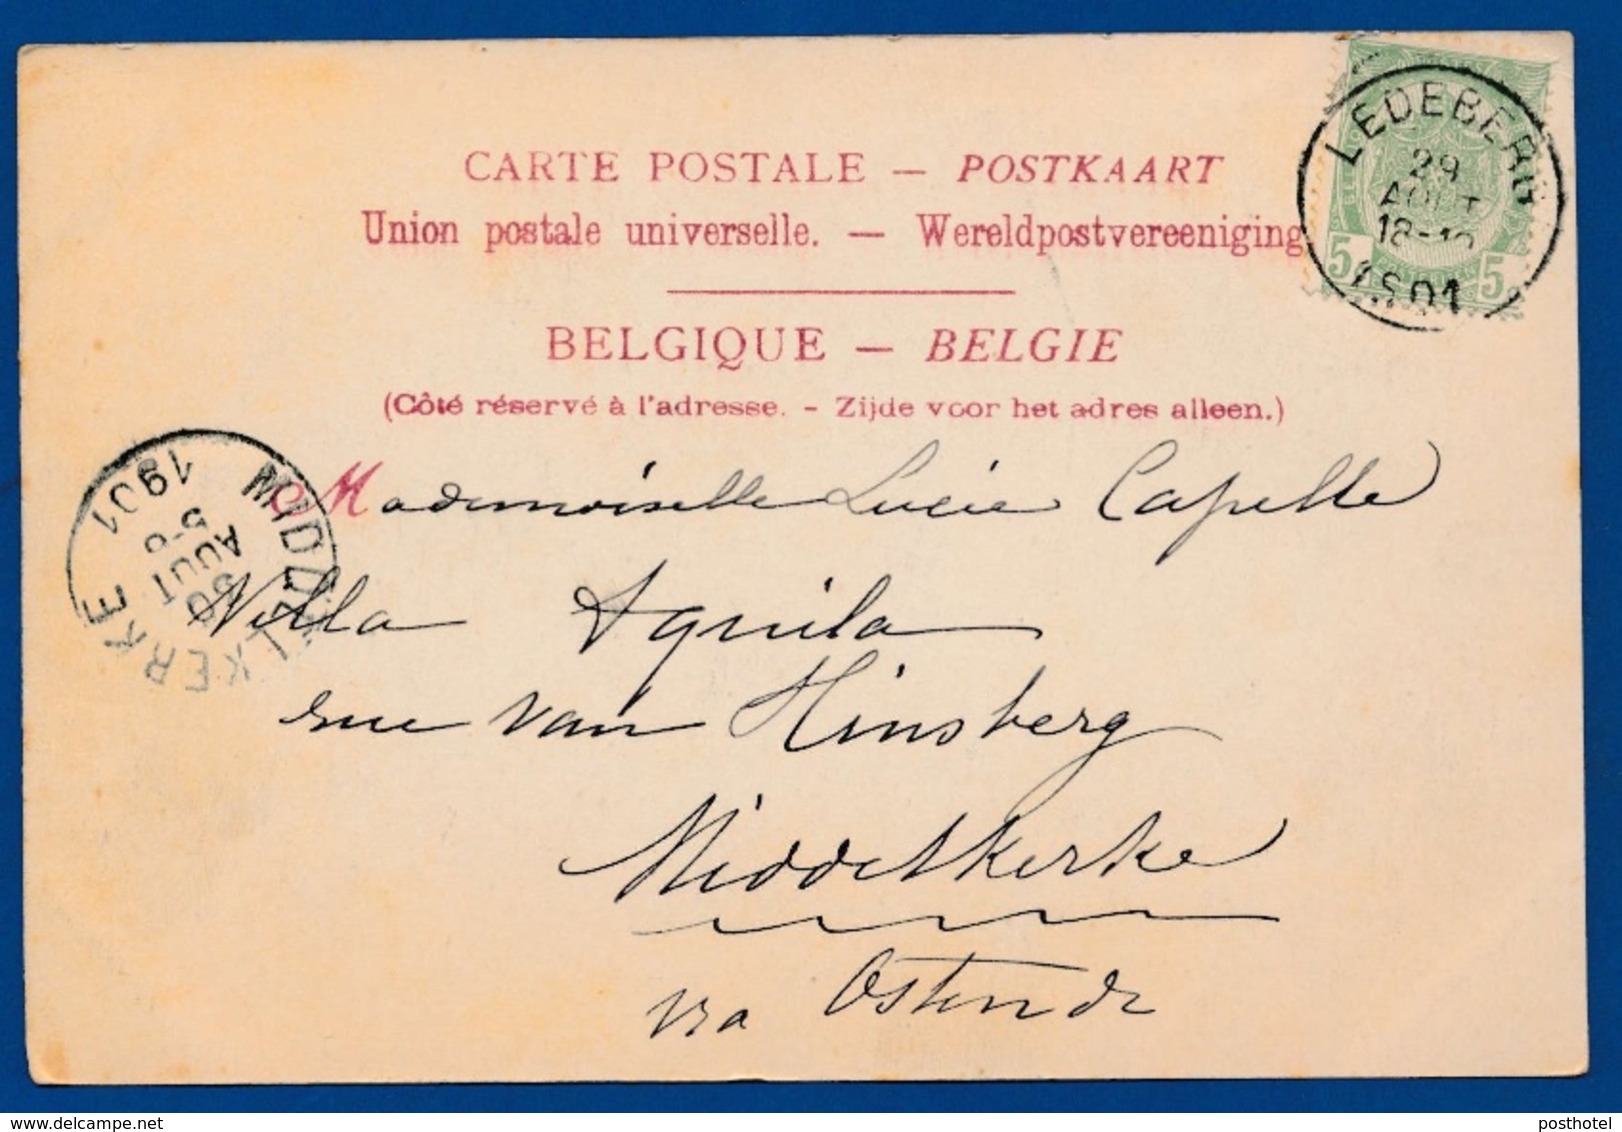 CARTE POSTALE — POSTKAART
Union postale universelle. — Wereldpostvereeniging
BELGIQUE — BELGIE
(Côté réservé à l'adresse. - Zijde voor het adres alleen.)
LEDEBERG
29
AOUT
1901
5 5
MIDDELKERKE
30
AOUT
5-6
1901
Mademoiselle Lucie Capelle
Villa Aquila
rue van Hinsberg
Middelkerke
via Ostende
posthotel